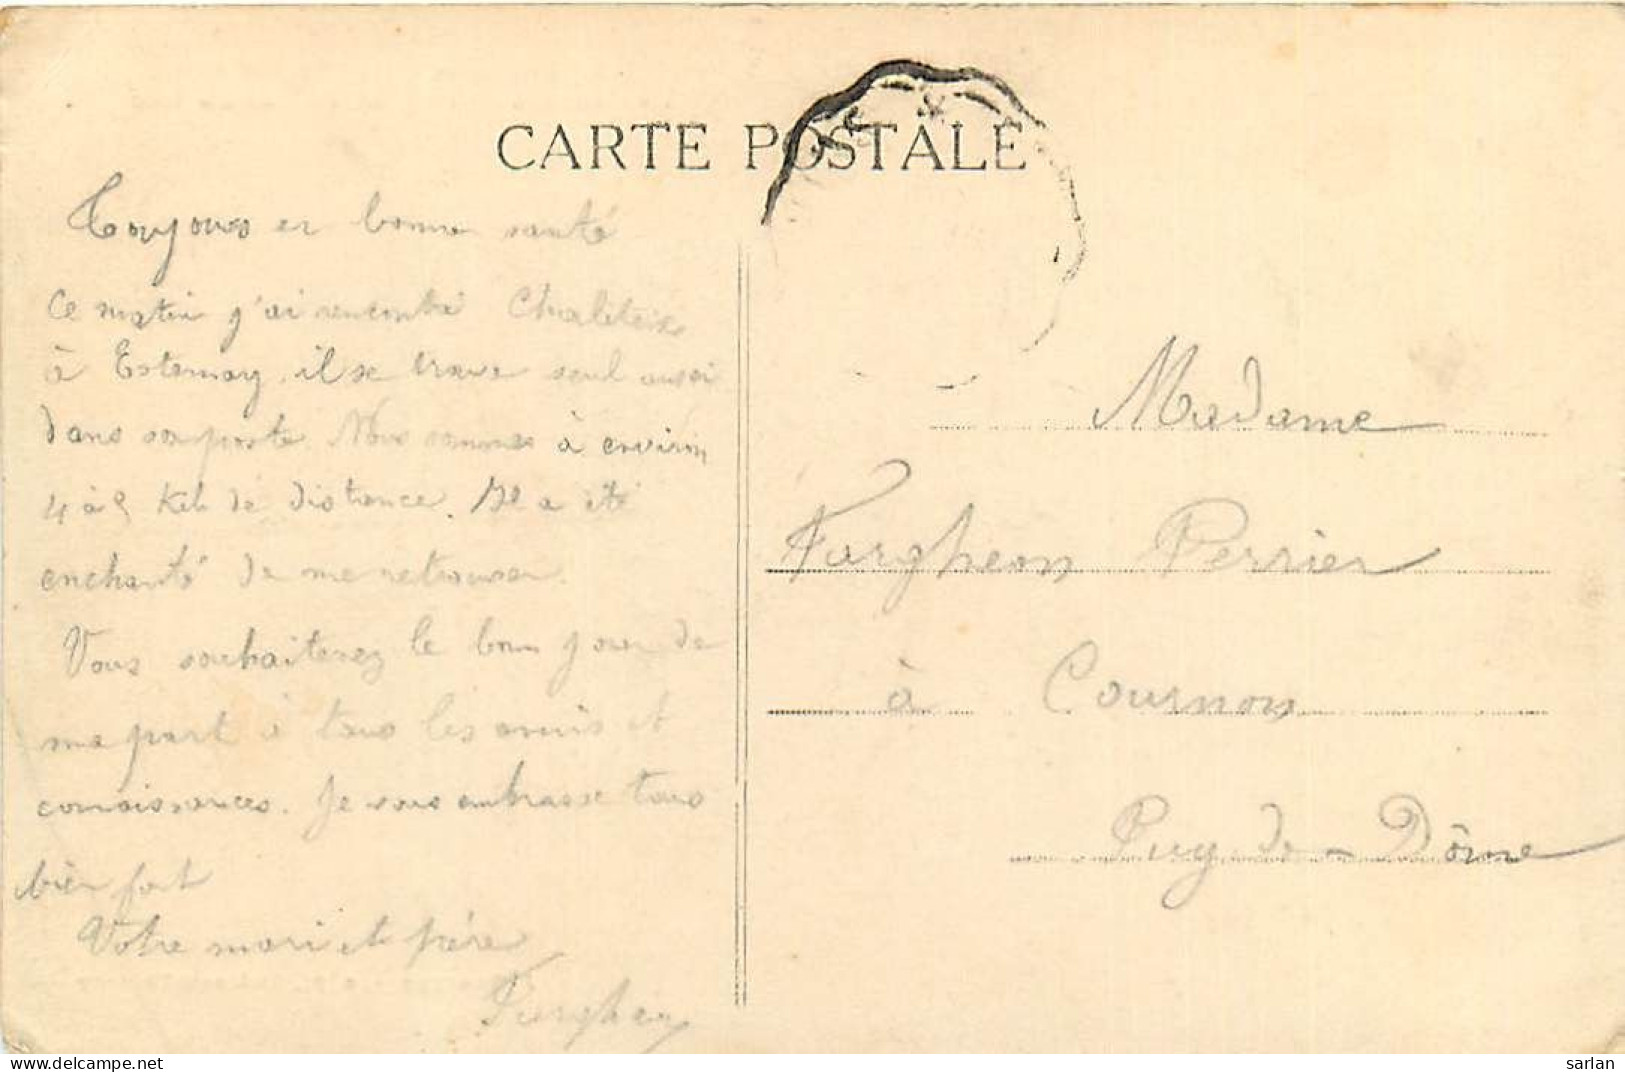 CARTE POSTALE
Toujours en bonne santé
Ce matin j'ai rencontré
à Esternay. il se trouve seul aussi
dans son poste. Nous sommes à environ
4 à 5 Kil. de distance. Il a été
enchanté de me retrouver.
Vous souhaiterez le bon jour de
ma part à tous les amis et
connaissances. Je vous embrasse tous
bien fort
Votre mari et père
Madame
Fargheon Perrier
à Cournon
Puy-de-Dôme
sarlan